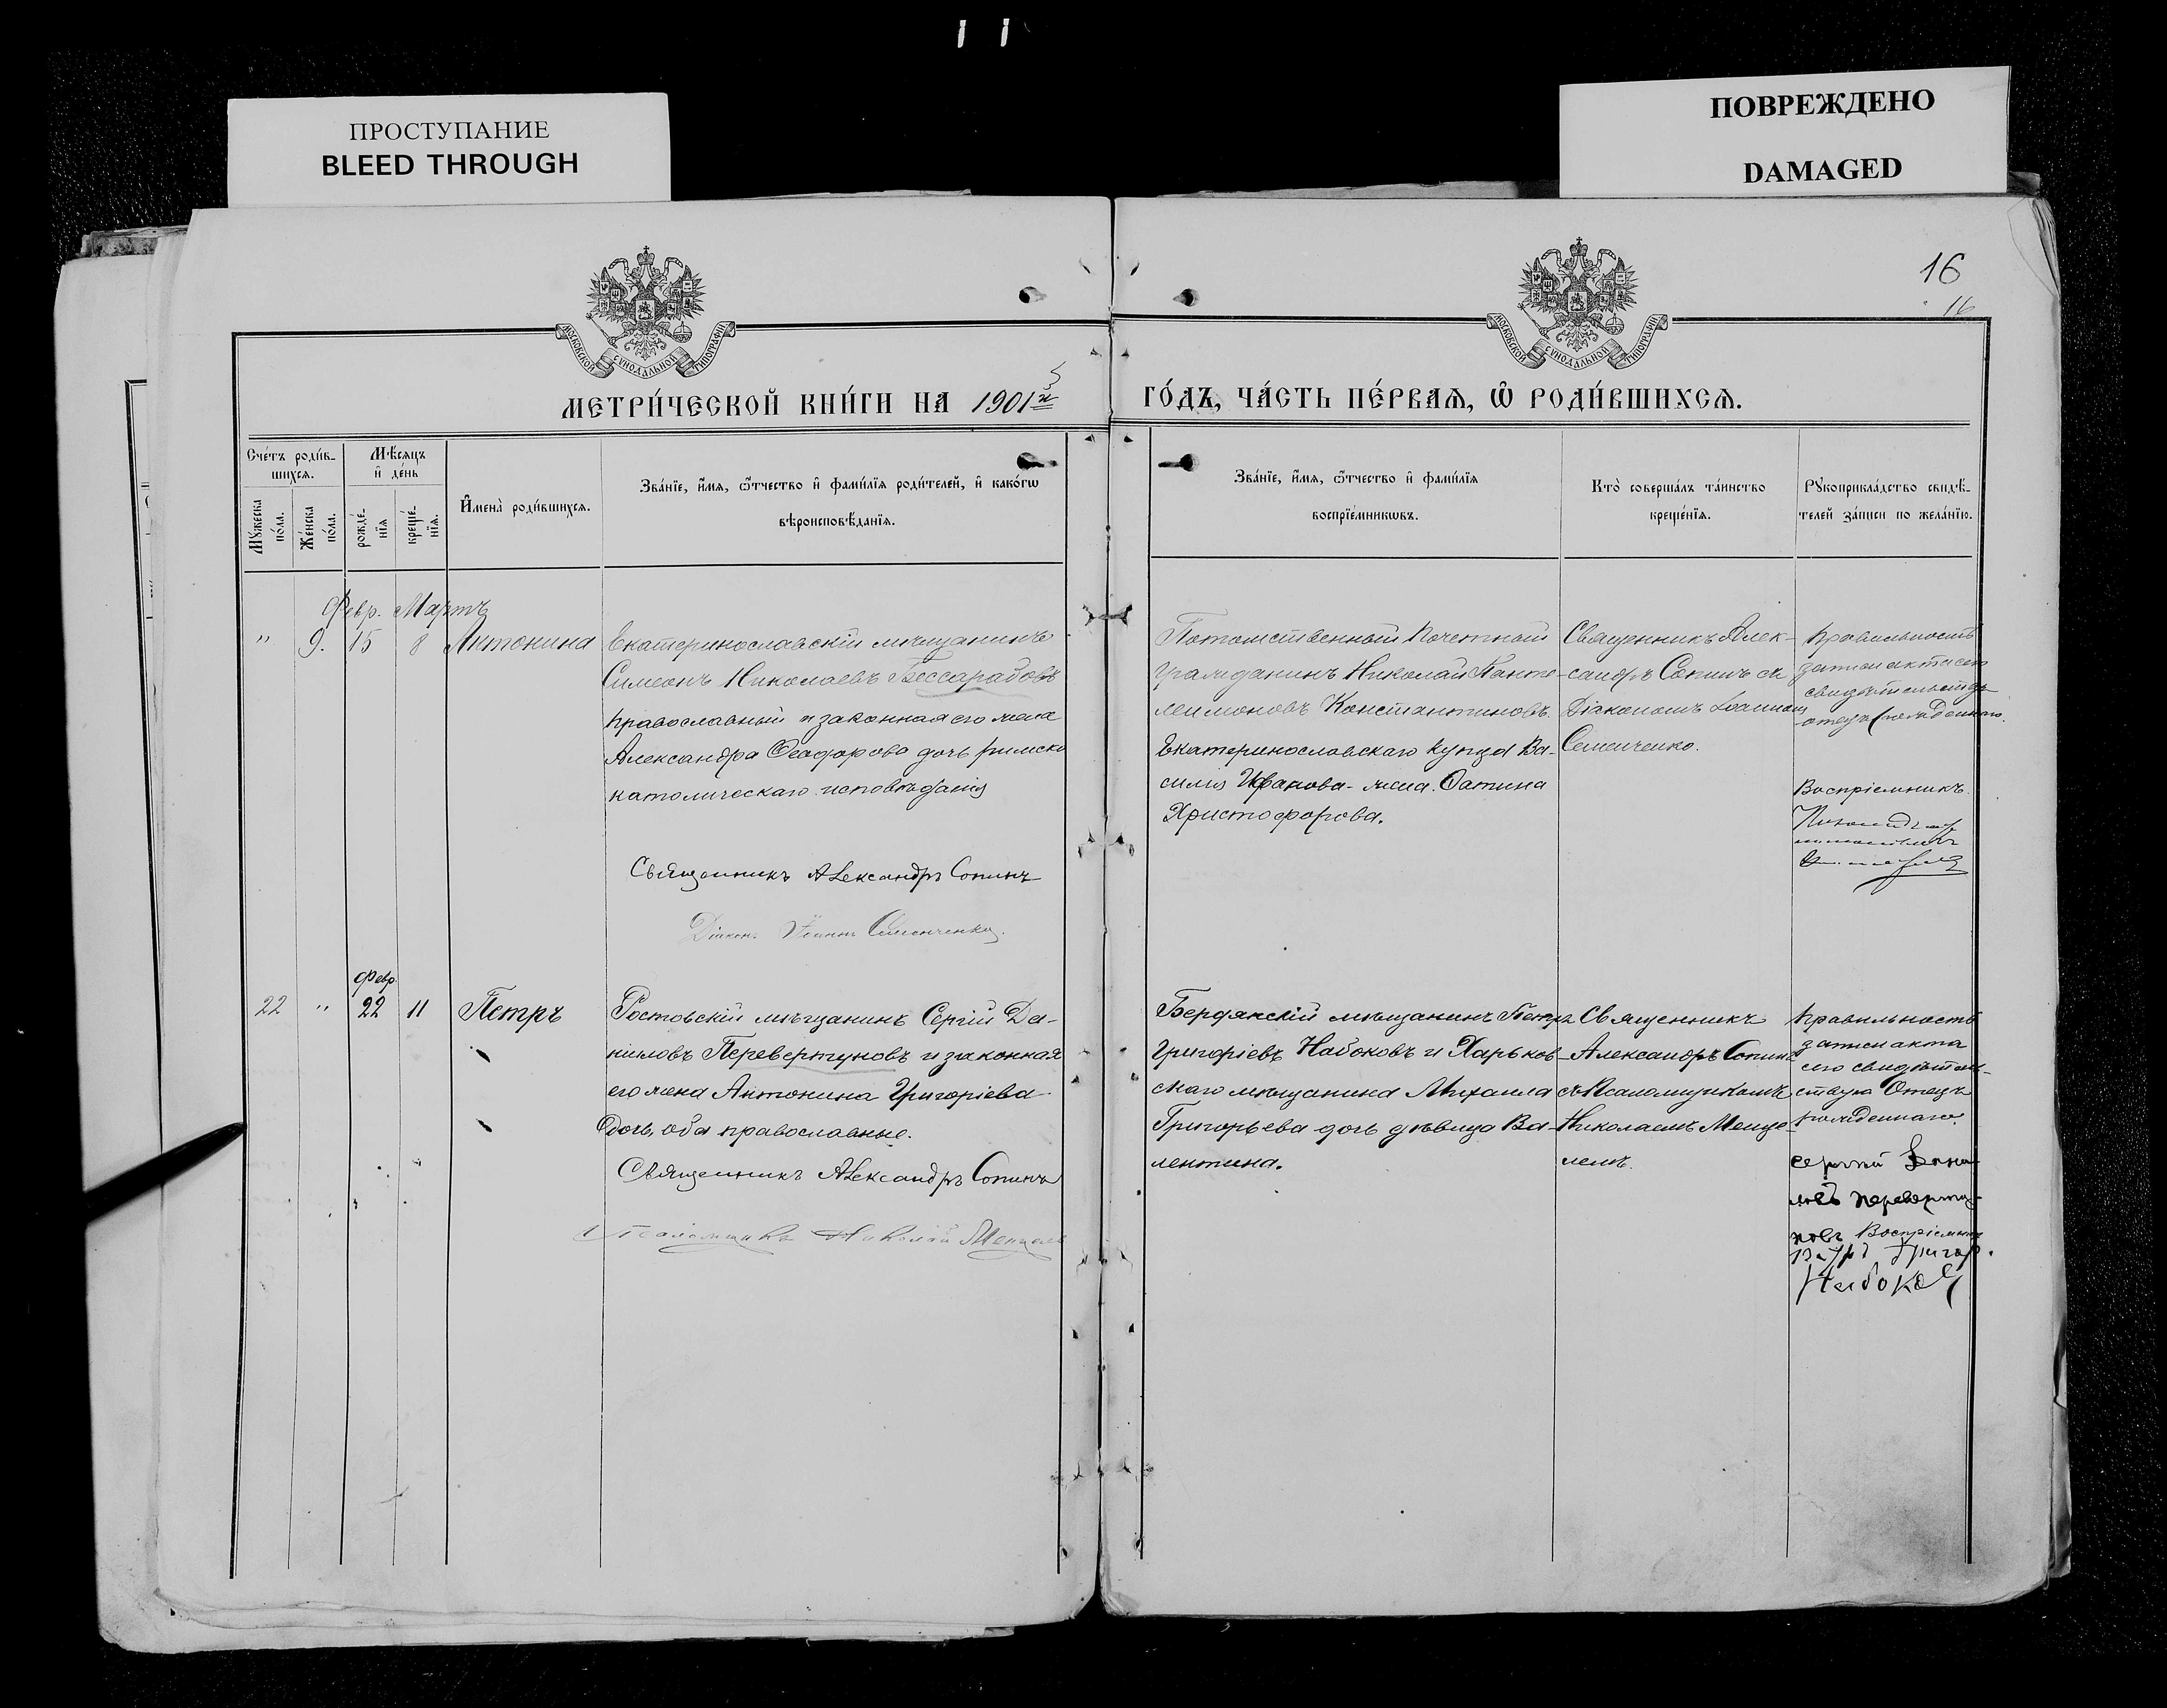 ПРОСТУПАНИЕ
BLEED THROUGH
ПОВРЕЖДЕНО
DAMAGED
16
16
МОСКОВСКОЙ СѴНОДАЛЬНОЙ ТИПОГРАФІИ
МОСКОВСКОЙ СѴНОДАЛЬНОЙ ТИПОГРАФІИ
МЕТРИ́ЧЕСКОЙ КНИ́ГИ НА 1901й
ГО́ДЪ, ЧА́СТЬ ПЕ́РВАѦ, Ѽ РОДИ́ВШИХСѦ.
Сче́тъ роди́в-
шихсѧ.
Мѣ́сѧцъ
и҆ де́нь
Мꙋ́жеска
по́ла.
Же́нска
по́ла.
рожде́-
нїѧ
креще́-
нїѧ.
И҆мена̀ роди́вшихсѧ.
Зва́нїе, и҆́мѧ, ѻ҆́тчество и҆ фамѝлїѧ роди́телей, и҆ како́гѡ
вѣроисповѣ́данїѧ.
Зва́нїе, и҆́мѧ, ѻ҆́тчество и҆ фами́лїѧ
воспрїе́мникѡвъ.
Кто̀ соверша́лъ та́инство
креще́нїѧ.
Рꙋкоприкла́дство свидѣ́-
телей за́писи по жела́нїю.
Февр. Мартъ
" 9. 15 8 Антонина
Екатеринославскій мѣщанинъ
Симеонъ Николаевъ Бессарабовъ
православный и законная его жена
Александра Феодорова дочь римско
католическаго исповѣданія
Священникъ Александръ Сопинъ
Діаконъ Іоаннъ Семенченко.
Потомственный Почетный
гражданинъ Николай Панте-
леимоновъ Константиновъ.
Екатеринославскаго купца Ва-
силія Иванова жена Фотина
Христофорова.
Священникъ Алек-
сандръ Сопинъ съ
Діакономъ Іоанномъ
Семенченко.
Правильность
записи акта сего
свидѣтельствую
отецъ рожденнаго.
Воспріемникъ
Февр
22 " 22 11 Петръ
Ростовскій мѣщанинъ Сергій Да-
ниловъ Перевертуновъ и законная
его жена Антонина Григоріева
дочь, оба православные.
Священникъ Александръ Сопинъ
Псаломщикъ Николай Менцель
Бердянскій мѣщанинъ Петръ
Григоріевъ Набоковъ и Харьков-
скаго мѣщанина Михаила
Григорьева дочь дѣвица Ва-
лентина.
Священникъ
Александръ Сопинъ
съ Псаломщикомъ
Николаемъ Менце-
лемъ.
Правильность
записи акта
сего свидѣтель-
ствую Отецъ
рожденнаго.
Сергѣй Дани
ловъ Перевертун-
новъ Воспріемникъ
Петръ Григор.
Набоковъ